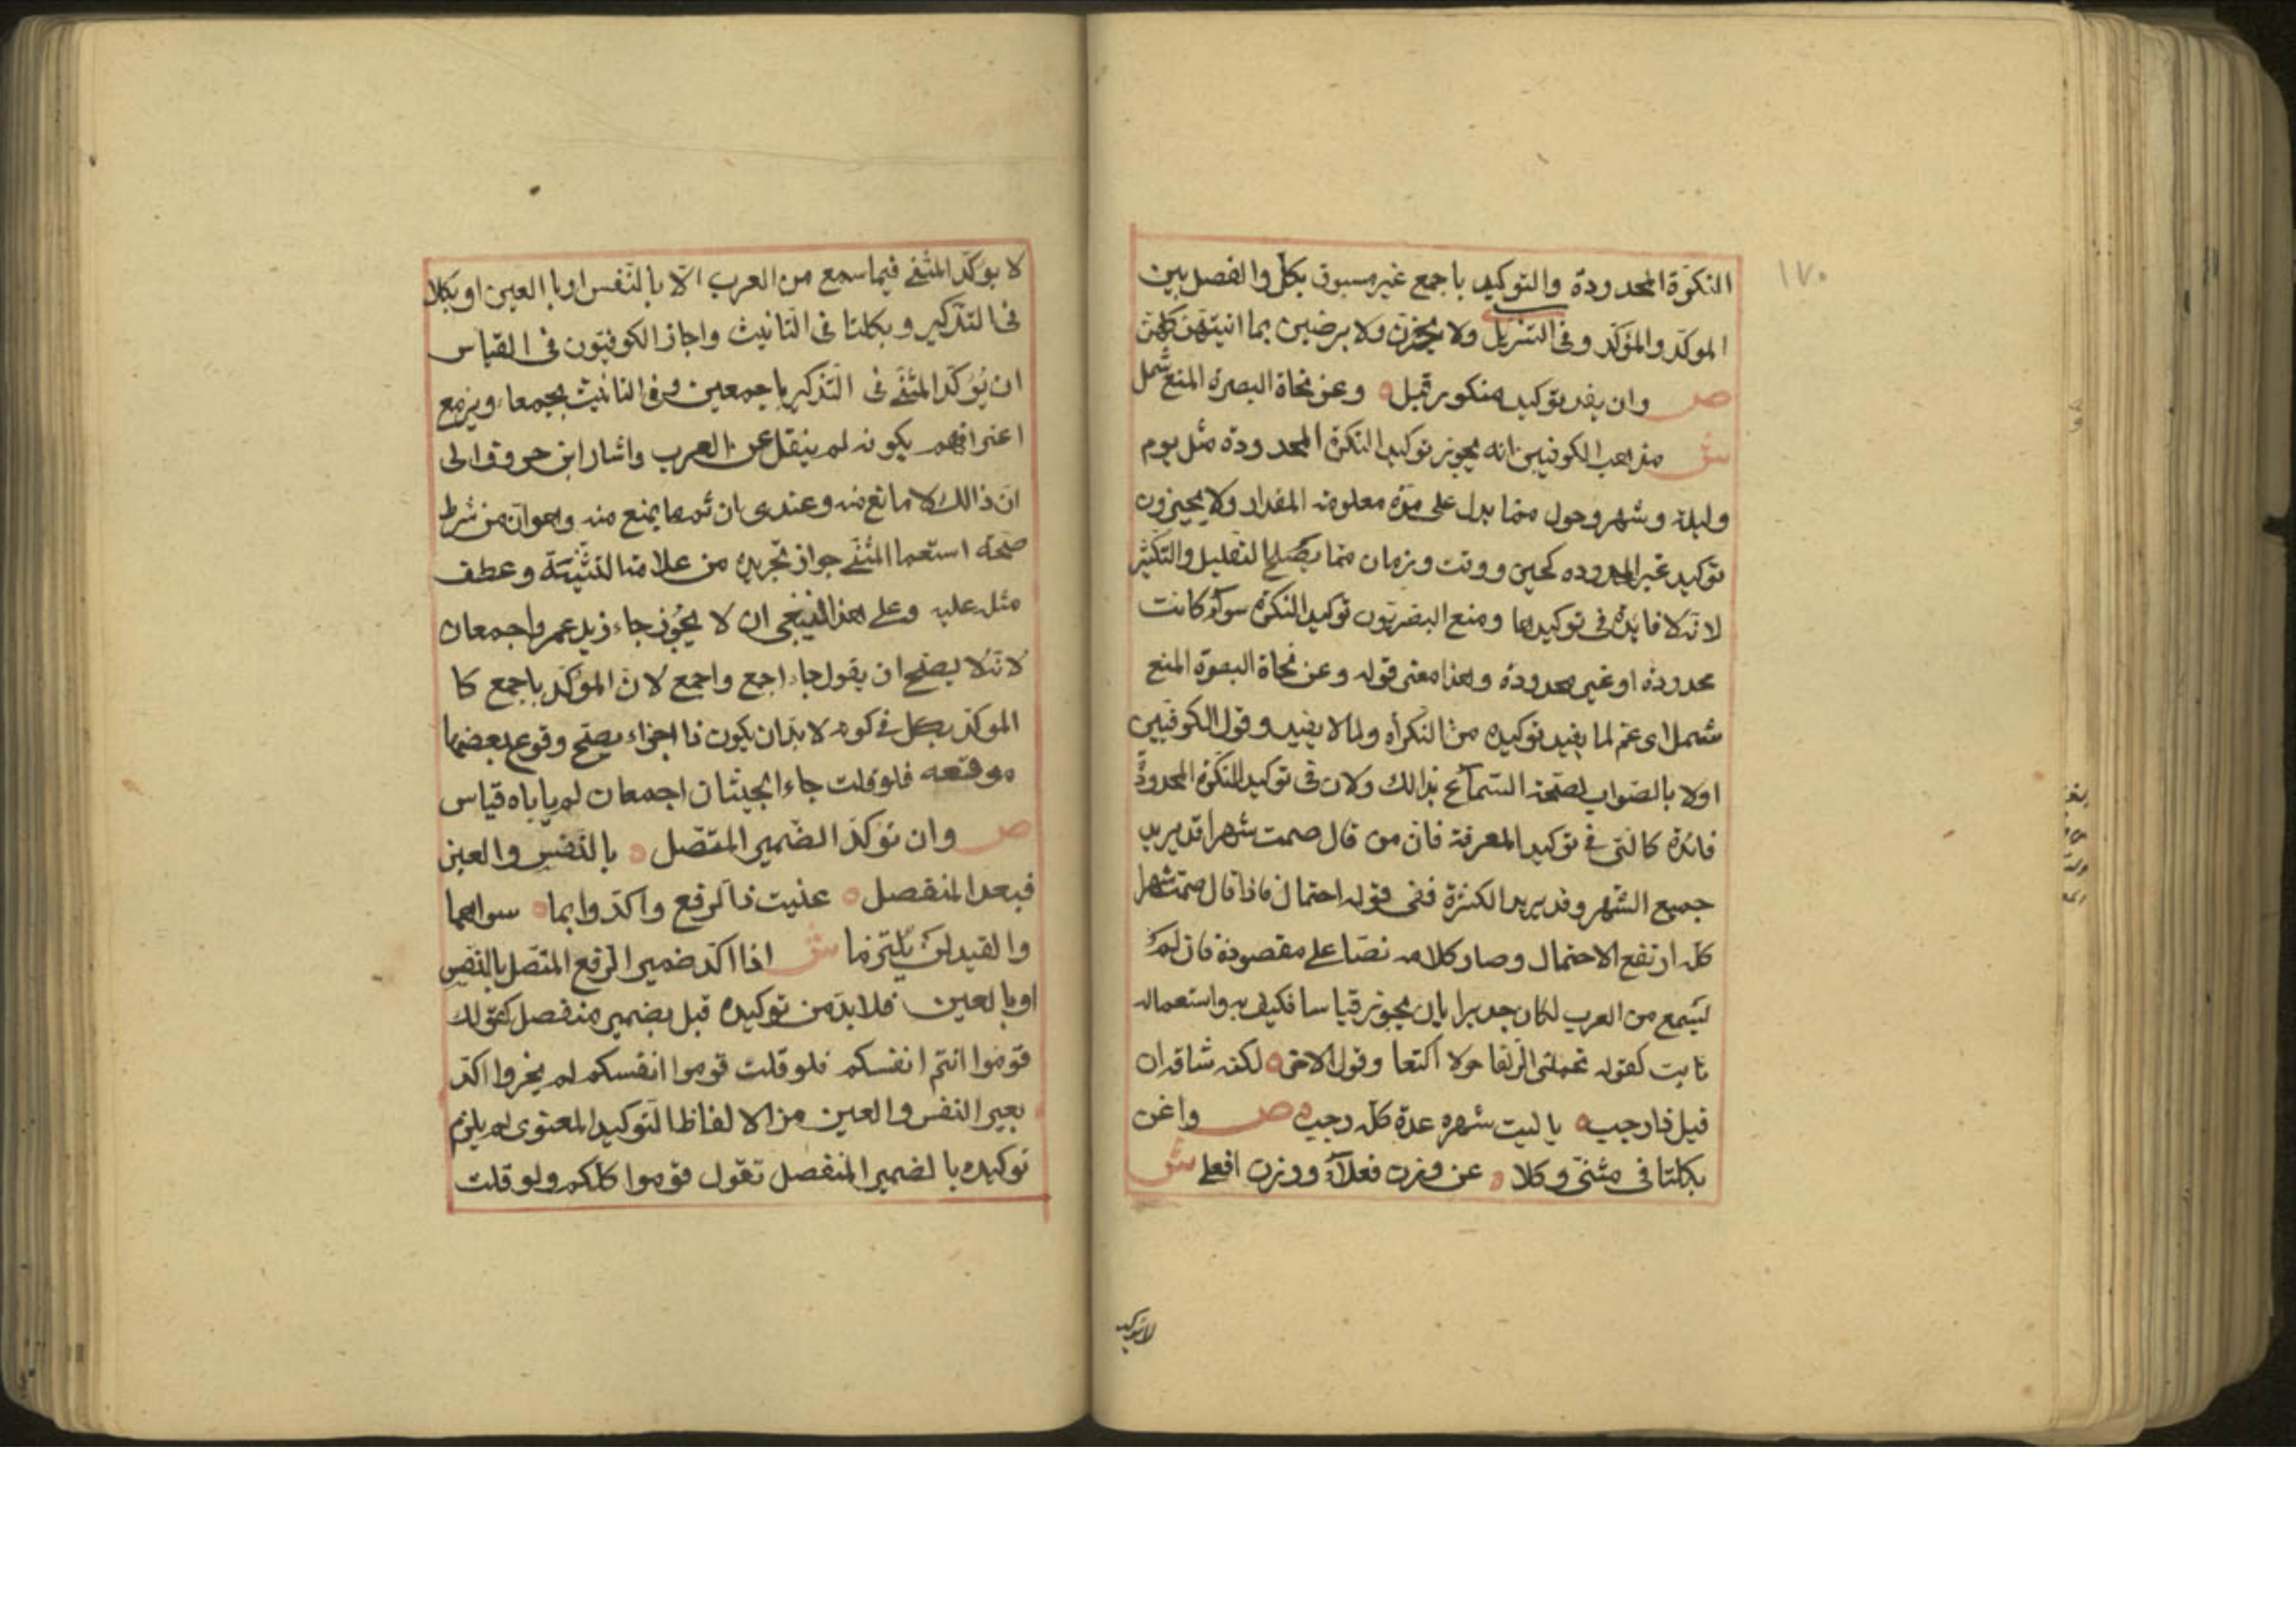 ١٧٠
النكرة المحدودة والتوكيد باجمع غير مسبوق بكل والفصل بين
الموكد والمؤكد وفى التنزيل ولا يحزن ولا يرضين بما اتيتهن كلهن
ص وان يفد توكيد منكور قبل ه وعن نحاة البصرة المنع شمل
ش مذهب الكوفيين انه يجوز توكيد النكرة المحدودة مثل يوم
وليلة وشهر وحول مما يدل على مدة معلومة المقدار ولا يجيزون
توكيد غير المحدوده كحين ووقت وزمان مما يصلح للتقليل والتكثير
لانه لا فايدة فى توكيدها ومنع البصريون توكيد النكرة سوآء كانت
محدودة او غير محدودة وهذا معنى قوله وعن نحاة البصرة المنع
شمل اى عم لما يفيد توكيده من النكرأة ولما لا يفيد وقول الكوفيين
اولا بالصواب لصحة السماع بذالك ولان فى توكيد النكرة المحدودة
فائدة كالتى فى توكيد المعرفة فان من قال صمت شهرا قد يريد
جميع الشهر وقد يريد الكثرة ففى قوله احتمال فاذا قال صمت شهرا
كله ارتفع الاحتمال وصار كلامه نصا على مقصودة فان لم
يسمع من العرب لكان جديرا بان يجوز قياسا فكيف به واستعماله
ثابت كقوله تحملنى الزلفا حولا اكتعا وقول الاخر ه لكنه شاقه ان
قيل ذا رجب ه يا ليت شهره عدة كله رجب ه ص واغن
بكلتا فى مثنى وكلا ه عن وزن فعلآء ووزن افعلى ش
لا توكيد
لا يؤكد المثنى فيما سمع من العرب الا بالنفس او بالعين او بكلا
فى التذكير وبكلتا فى التانيث واجاز الكوفيون فى القياس
ان يؤكد المثنى فى التذكير باجمعين وفى التانيث بجمعا، ويزمع
اعترافهم بكونه لم ينقل عن العرب واشار ابن حروف الى
ان ذالك لا مانع منه وعندى ان ثم ما يمنع منه وهو ان من شرط
صحة استعما المثنى جواز تجريده من علامة التثنية وعطف
مثله عليه وعلى هذا لا ينبغى ان لا يجوز جاء زيد عمر واجمعان
لانه لا يصح ان يقول جاء اجمع واجمع لان المؤكد باجمع كا
الموكد بكل فى كونه لا بد ان يكون ذا اجزاء يصح وقوع بعضها
موقعه فلو قلت جاء الجيشان اجمعان لم ياباه قياس
ص وان تؤكد الضمير المتصل ه بالنفس والعين
فبعد المنفصل ه عنيت ذا الرفع واكدوا بما ه سواهما
والقيد لن يلتزما ش اذا اكد ضمير الرفع المتصل بالنفس
او بالعين فلا بد من توكيده قبل بضمير منفصل كقولك
قوموا انتم انفسكم فلو قلت قوموا انفسكم لم يجز واكد
بعير النفس والعين من الالفاظ التوكيد المعنوى لم يلزم
توكيده بالضمير المنفصل تقول قوموا كلكم ولو قلت